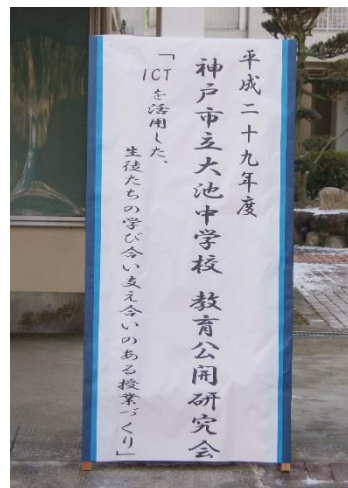 平成二十九年度
神戸市立大池中学校 教育公開研究会
「ICTを活用した、
生徒たちの学び合い支え合いのある授業づくり」